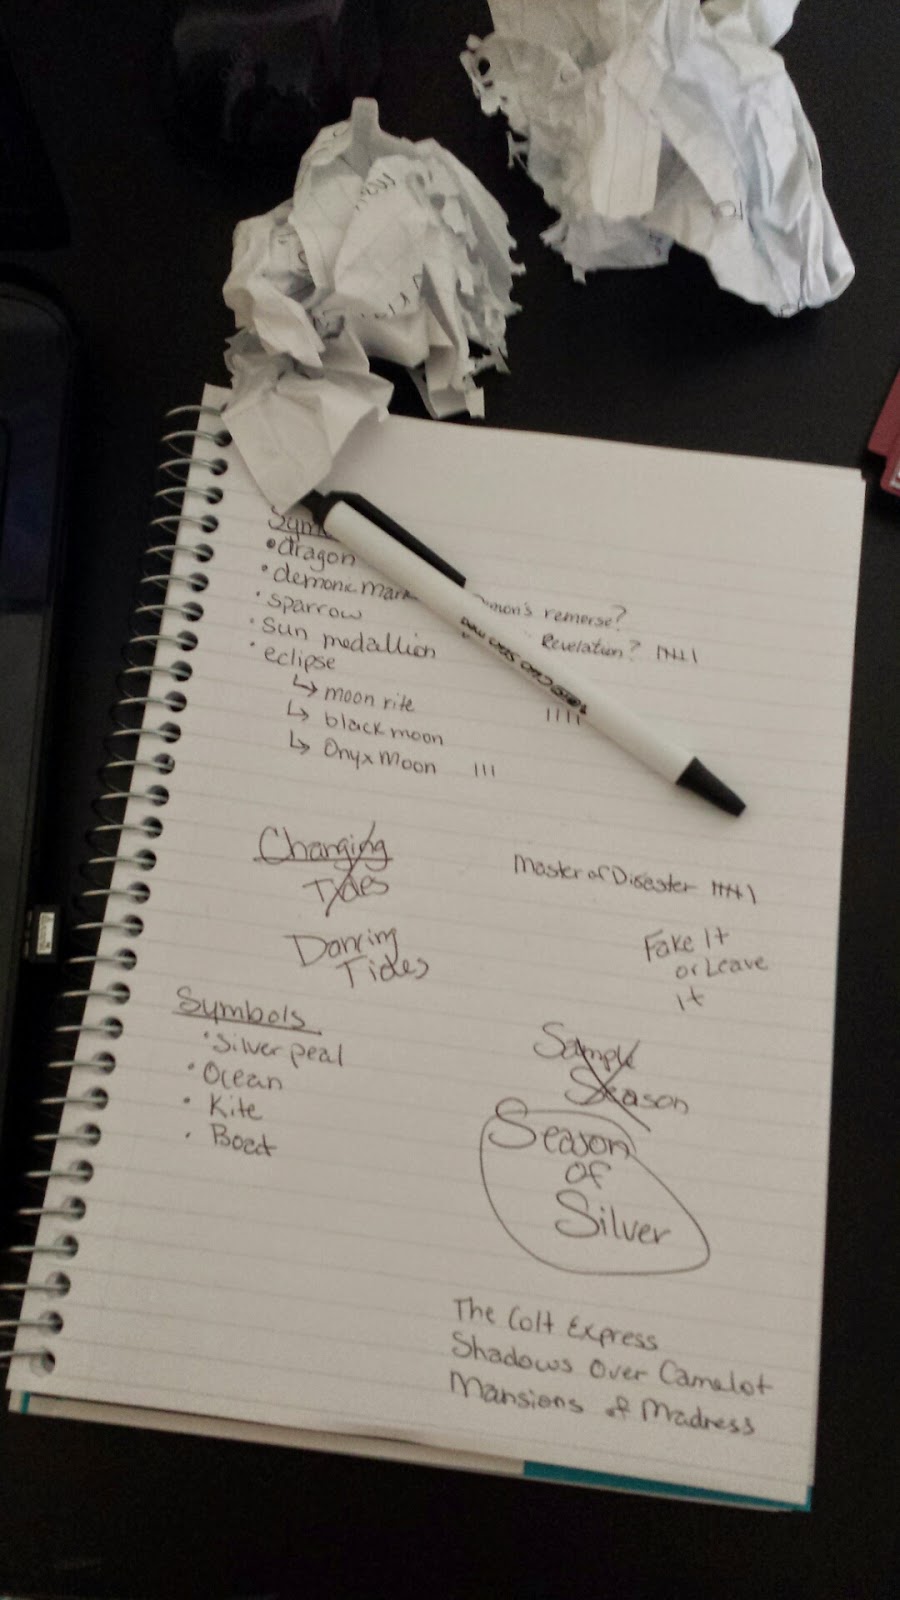 Sym
• dragon
• demonic mark
• sparrow
• sun medallion
• eclipse
↳ moon rite
↳ black moon
↳ Onyx Moon III
remerse?
Revelation?
IIII
Changing
Tides
Dancing
Tides
Master of Disaster
Fake It
or Leave
it
Symbols
• Silver peal
• Ocean
• Kite
• Boat
Sample
Season
Season
of
Silver
The Colt Express
Shadows Over Camelot
Mansions of Madness